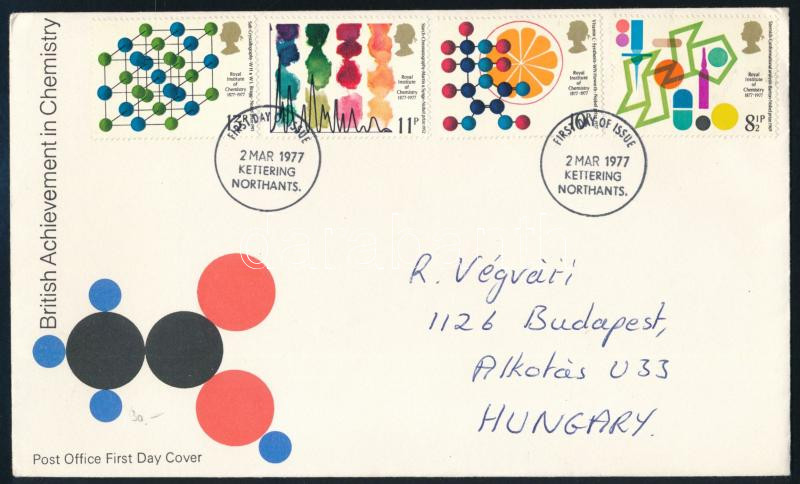 British Achievement in Chemistry
Royal
Institute
of
Chemistry
1877-1977
13P
Starch-Chromatography-Martin & Synge-Nobel prize 1952
Royal
Institute
of
Chemistry
1877-1977
11P
Royal
Institute
of
Chemistry
1877-1977
10P
Royal
Institute
of
Chemistry
1877-1977
8½P
FIRST DAY OF ISSUE
2 MAR 1977
KETTERING
NORTHANTS.
FIRST DAY OF ISSUE
2 MAR 1977
KETTERING
NORTHANTS.
R. Végvári
1126 Budapest,
Alkotás U33
HUNGARY.
30.-
Post Office First Day Cover